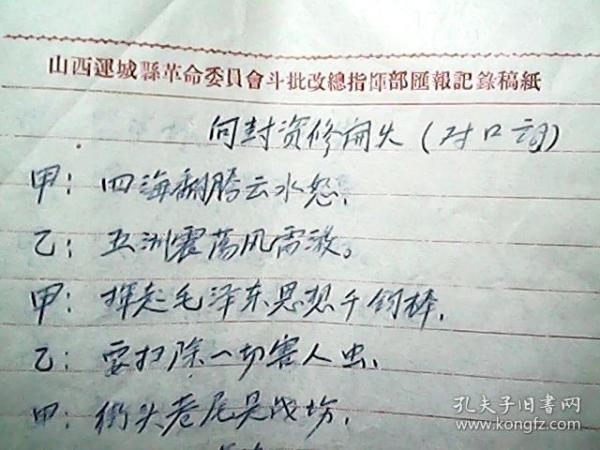 山西運城縣革命委員會斗批改總指揮部匯報記錄稿紙
向封资修开火(对口词)
甲:四海翻腾云水怒,
乙:五洲震荡风雷激。
甲:挥起毛泽东思想千钧棒,
乙:要扫除一切害人虫、
甲:街头巷尾是战场,
孔夫子旧书网
www.kongfz.com